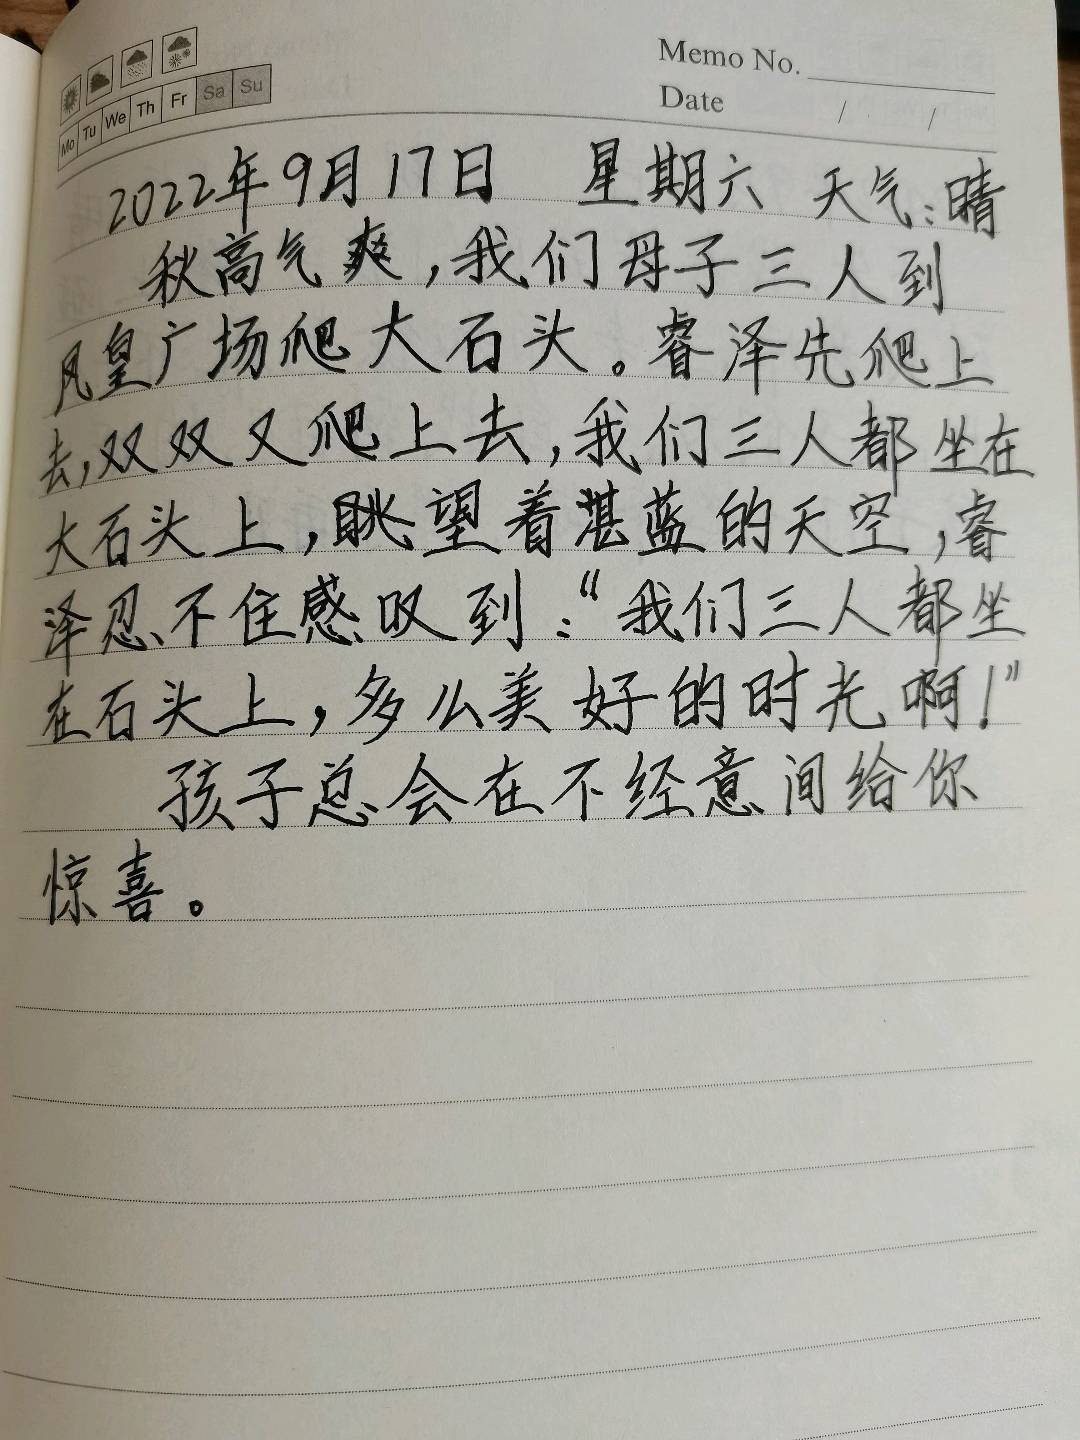 Memo No.
Date / /
Mo Tu We Th Fr Sa Su
2022年9月17日 星期六 天气:晴
秋高气爽,我们母子三人到
凤皇广场爬大石头。睿泽先爬上
去,双双又爬上去,我们三人都坐在
大石头上,眺望着湛蓝的天空,睿
泽忍不住感叹到:“我们三人都坐
在石头上,多么美好的时光啊!”
孩子总会在不经意间给你
惊喜。